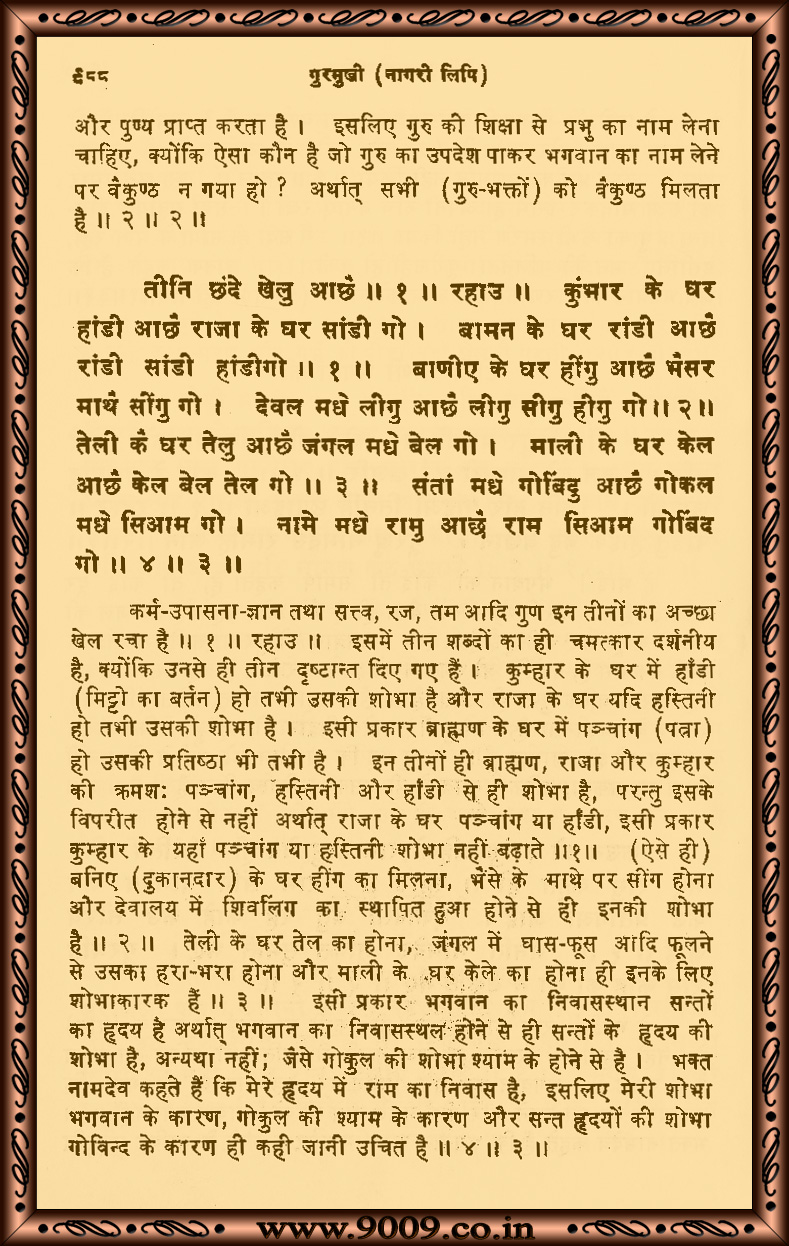 ६८८ गुरमुखी (नागरी लिपि)
और पुण्य प्राप्त करता है । इसलिए गुरु की शिक्षा से प्रभु का नाम लेना
चाहिए, क्योंकि ऐसा कौन है जो गुरु का उपदेश पाकर भगवान का नाम लेने
पर वैकुण्ठ न गया हो ? अर्थात् सभी (गुरु-भक्तों) को वैकुण्ठ मिलता
है ॥ २ ॥ २ ॥
तीनि छंदे खेलु आछै ॥ १ ॥ रहाउ ॥ कुंभार के घर
हांडी आछै राजा के घर सांडी गो । बामन के घर रांडी आछै
रांडी सांडी हांडीगो ॥ १ ॥ बाणीए के घर हींगु आछै भैसर
माथै सींगु गो । देवल मधे लीगु आछै लीगु सीगु हीगु गो ॥ २ ॥
तेली कै घर तेलु आछै जंगल मधे बेल गो । माली के घर केल
आछै केल बेल तेल गो ॥ ३ ॥ संतां मधे गोबिंदु आछै गोकल
मधे सिआम गो । नामे मधे रामु आछै राम सिआम गोबिंद
गो ॥ ४ ॥ ३ ॥
कर्म-उपासना-ज्ञान तथा सत्त्व, रज, तम आदि गुण इन तीनों का अच्छा
खेल रचा है ॥ १ ॥ रहाउ ॥ इसमें तीन शब्दों का ही चमत्कार दर्शनीय
है, क्योंकि उनसे ही तीन दृष्टान्त दिए गए हैं । कुम्हार के घर में हाँडी
(मिट्टी का बर्तन) हो तभी उसकी शोभा है और राजा के घर यदि हस्तिनी
हो तभी उसकी शोभा है । इसी प्रकार ब्राह्मण के घर में पञ्चांग (पत्रा)
हो उसकी प्रतिष्ठा भी तभी है । इन तीनों ही ब्राह्मण, राजा और कुम्हार
की क्रमशः पञ्चांग, हस्तिनी और हाँडी से ही शोभा है, परन्तु इसके
विपरीत होने से नहीं अर्थात् राजा के घर पञ्चांग या हाँडी, इसी प्रकार
कुम्हार के यहाँ पञ्चांग या हस्तिनी शोभा नहीं बढ़ाते ॥१॥ (ऐसे ही)
बनिए (दुकानदार) के घर हींग का मिलना, भैंसे के माथे पर सींग होना
और देवालय में शिवलिंग का स्थापित हुआ होने से ही इनकी शोभा
है ॥ २ ॥ तेली के घर तेल का होना, जंगल में घास-फूस आदि फूलने
से उसका हरा-भरा होना और माली के घर केले का होना ही इनके लिए
शोभाकारक हैं ॥ ३ ॥ इसी प्रकार भगवान का निवासस्थान सन्तों
का हृदय है अर्थात् भगवान का निवासस्थल होने से ही सन्तों के हृदय की
शोभा है, अन्यथा नहीं; जैसे गोकुल की शोभा श्याम के होने से है । भक्त
नामदेव कहते हैं कि मेरे हृदय में राम का निवास है, इसलिए मेरी शोभा
भगवान के कारण, गोकुल की श्याम के कारण और सन्त हृदयों की शोभा
गोविन्द के कारण ही कही जानी उचित है ॥ ४ ॥ ३ ॥
www.9009.co.in